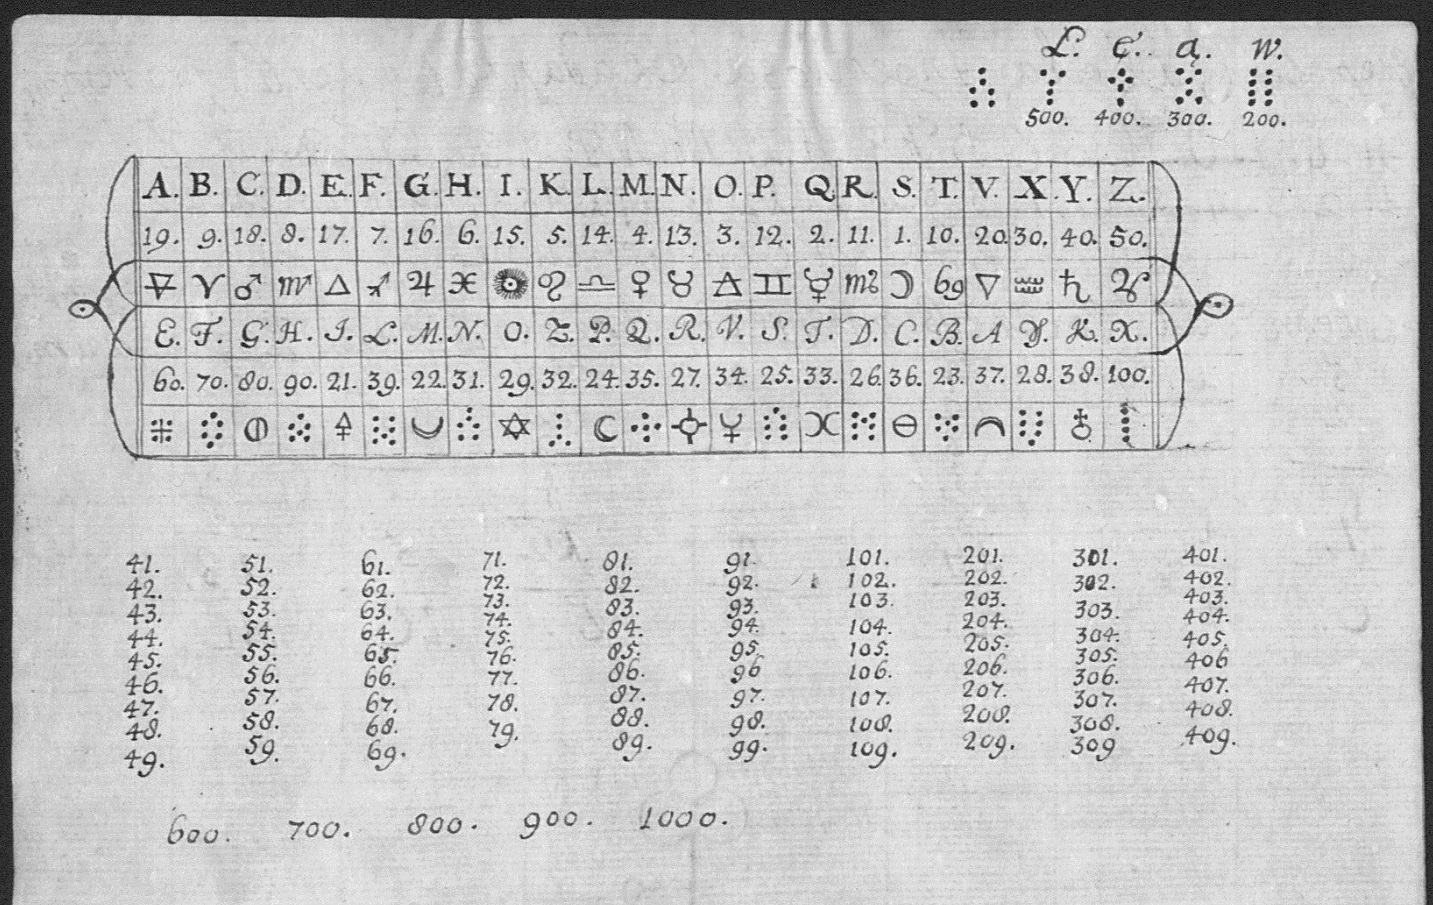 L. C. a. w.
500. 400. 300. 200.
A. B. C. D. E. F. G. H. I. K. L. M. N. O. P. Q. R. S. T. V. X. Y. Z.
19. 9. 18. 8. 17. 7. 16. 6. 15. 5. 14. 4. 13. 3. 12. 2. 11. 1. 10. 20. 30. 40. 50.
🜃 ♈ ♂ ♏ △ ♐ ♃ ♓ ☉ ♌ ♎ ♀ ♉ 🜁 ♊ ☿ ♍ ☽ ♋ ▽ ♒ ♄ ♑
E. F. G. H. I. L. M. N. O. Z. P. Q. R. V. S. T. D. C. B. A Y. K. X.
60. 70. 80. 90. 21. 39. 22. 31. 29. 32. 24. 35. 27. 34. 25. 33. 26. 36. 23. 37. 28. 38. 100.
41. 51. 61. 71. 81. 91. 101. 201. 301. 401.
42. 52. 62. 72. 82. 92. 102. 202. 302. 402.
43. 53. 63. 73. 83. 93. 103. 203. 303. 403.
44. 54. 64. 74. 84. 94. 104. 204. 304. 404.
45. 55. 65. 75. 85. 95. 105. 205. 305. 405.
46. 56. 66. 76. 86. 96 106. 206. 306. 406
47. 57. 67. 77. 87. 97. 107. 207. 307. 407.
48. 58. 68. 78. 88. 98. 108. 208. 308. 408.
49. 59. 69. 79. 89. 99. 109. 209. 309 409.
600. 700. 800. 900. 1000.